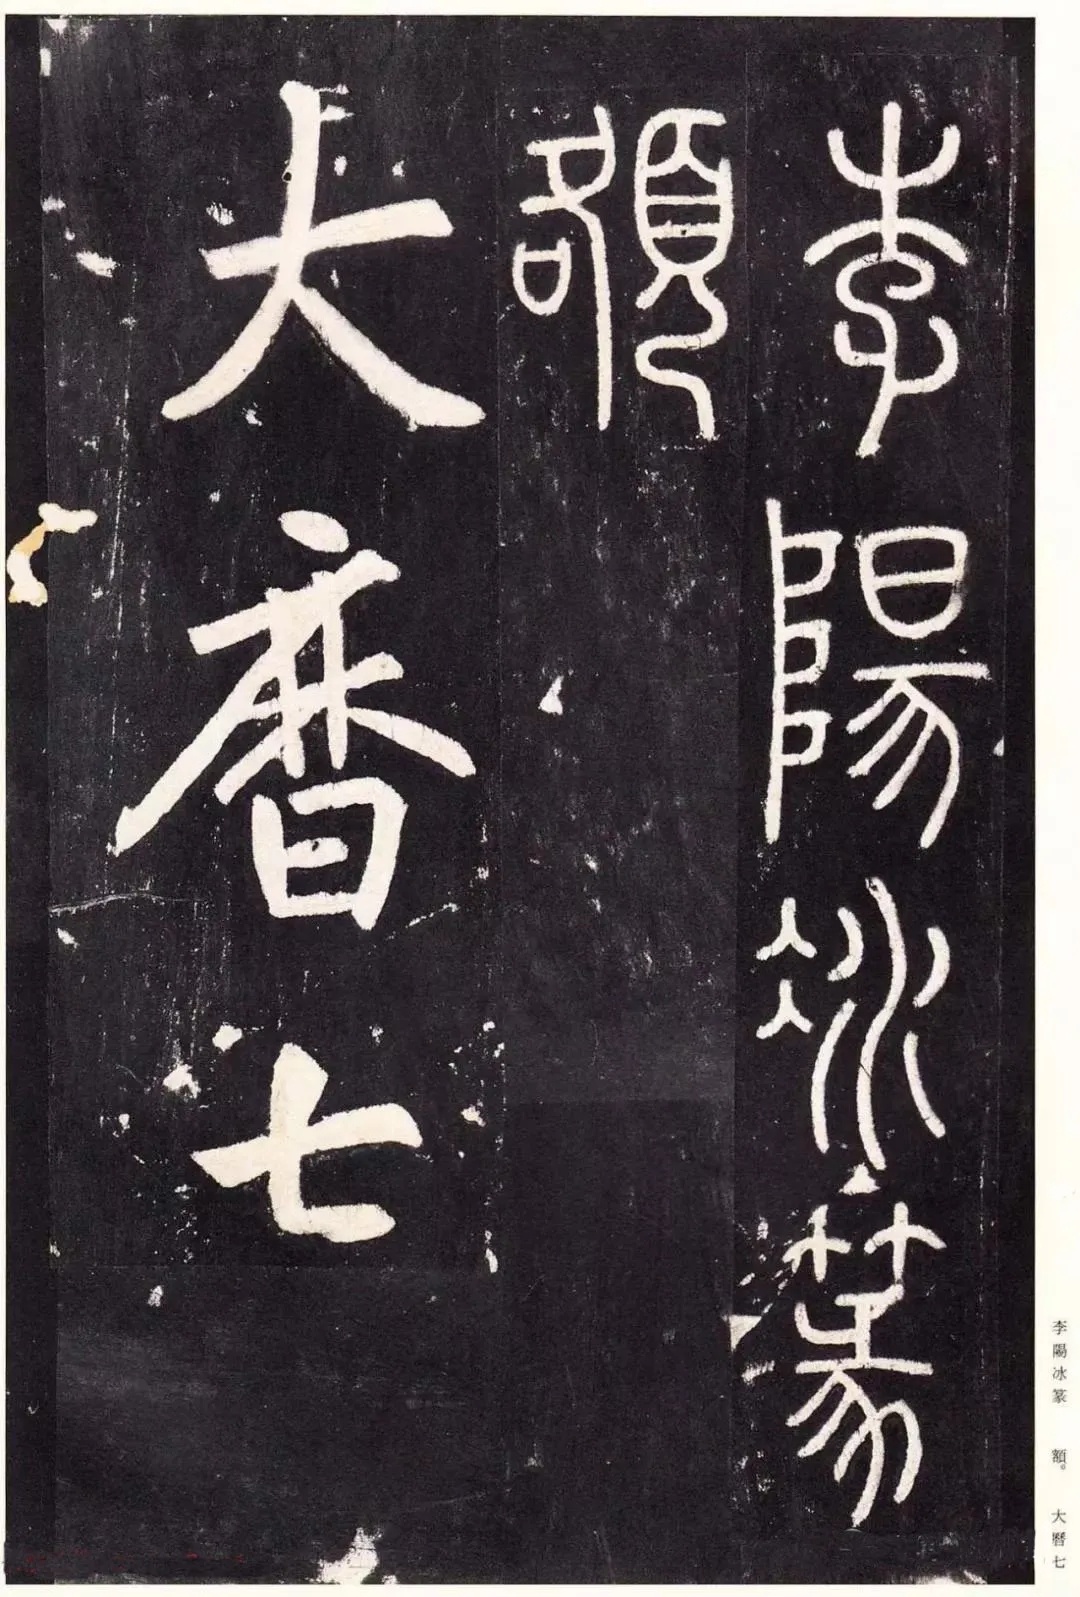 李陽冰篆
額
大曆七
李陽冰篆 額。 大曆七